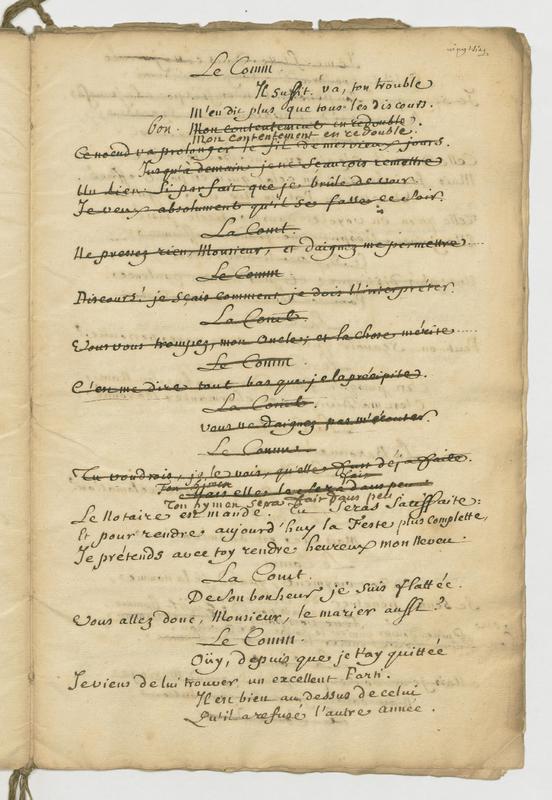 Le Comm.
Il suffit. va, ton trouble
M'en dit plus que tous les discours.
bon. Mon contentement en redouble.
Mon contentement en redouble.
Ce noeud va prolonger le fil de mes vieux jours.
Jusqu'à demain je ne sçaurois remettre
Un lien si parfait que je brûle de voir.
Je veux absolument qu'il se fasse ce soir.
La Comt.
Ne pressez rien, Monsieur, et daignez me permettre.....
Le Comm.
Discours! je sçais comment je dois l'interpréter.
La Comt.
Vous vous trompez, mon Oncle; et la chose mérite.....
Le Comm.
C'est me dire tout bas que je la précipite.
La Comt.
Vous ne daignez pas m'écouter.
Le Comm.
Tu voudrois, je le vois, qu'elle fut déja faite.
Ton hymen sera fait dans peu
Mais elle le sera dans peu
Ton hymen sera fait dans peu
Le Notaire est mandé. Tu seras satisfaite:
Et pour rendre aujourd'huy la Feste plus complette,
Je prétends avec toy rendre heureux mon Neveu.
La Comt.
De son bonheur je suis flattée.
Vous allez donc, Monsieur, le marier aussi?
Le Comm.
Oüy, depuis que je t'ay quittée
Je viens de lui trouver un excellent Parti.
Il est bien au dessus de celui
Qu'il a refusé l'autre année.